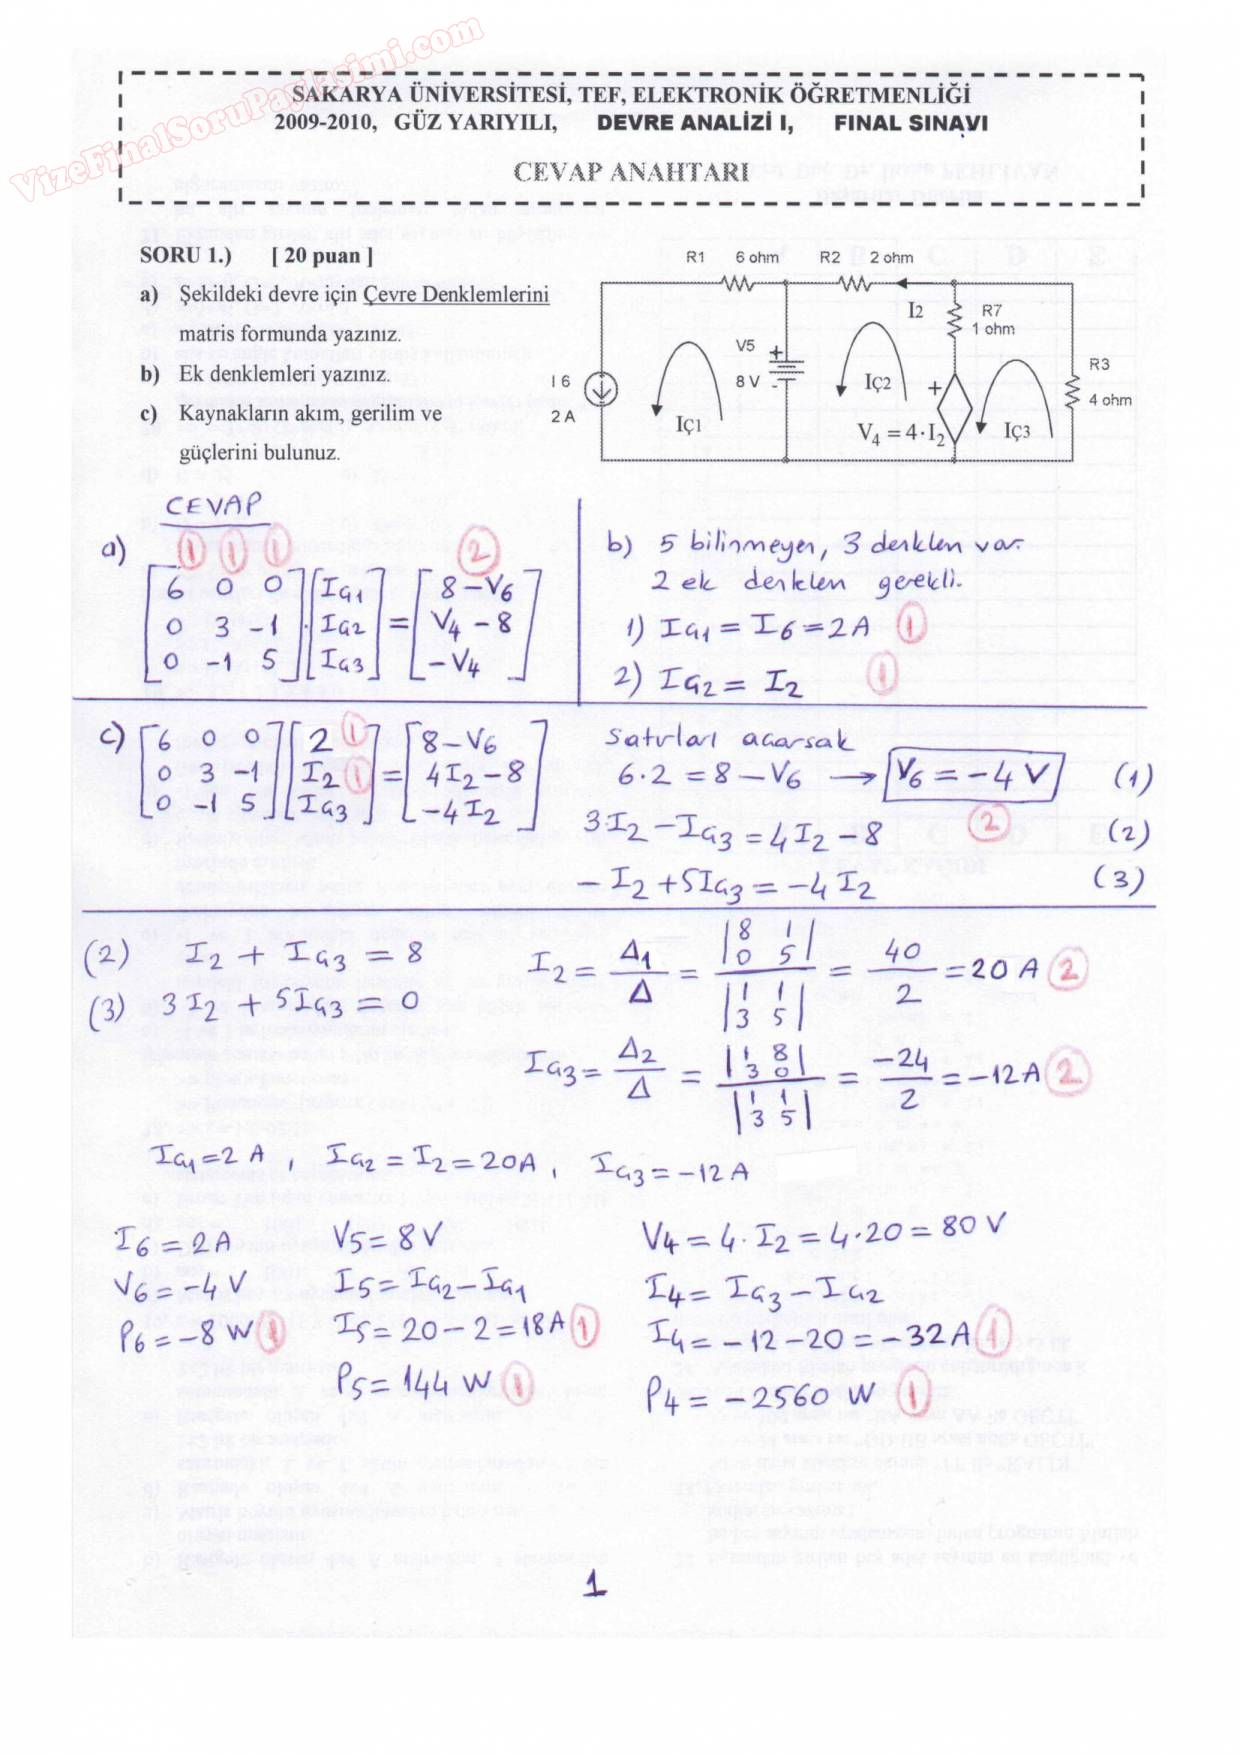 VizeFinalSoruPaylasimi.com
SAKARYA ÜNİVERSİTESİ, TEF, ELEKTRONİK ÖĞRETMENLİĞİ
2009-2010, GÜZ YARIYILI, DEVRE ANALİZİ I, FINAL SINAVI
CEVAP ANAHTARI
SORU 1.) [ 20 puan ]
a) Şekildeki devre için Çevre Denklemlerini
matris formunda yazınız.
b) Ek denklemleri yazınız.
c) Kaynakların akım, gerilim ve
güçlerini bulunuz.
R1 6 ohm R2 2 ohm
I2 R7
1 ohm
V5
8 V
+
-
R3
4 ohm
I 6
2 A
IÇ1
IÇ2
+
V4 = 4·I2
IÇ3
CEVAP
a) 1 1 1 2
[6 0 0] [IÇ1] = [8 - V6]
[0 3 -1] · [IÇ2] = [V4 - 8]
[0 -1 5] [IÇ3] = [-V4]
b) 5 bilinmeyen, 3 denklem var.
2 ek denklem gerekli.
1) IÇ1 = I6 = 2A 1
2) IÇ2 = I2 1
c) [6 0 0] [2 1] = [8 - V6]
[0 3 -1] [I2 1] = [4I2 - 8]
[0 -1 5] [IÇ3] = [-4I2]
Satırları açarsak
6·2 = 8 - V6 → V6 = -4 V (1)
3·I2 - IÇ3 = 4I2 - 8 2 (2)
- I2 + 5IÇ3 = -4I2 (3)
(2) I2 + IÇ3 = 8
(3) 3I2 + 5IÇ3 = 0
I2 = Δ1/Δ = |8 1; 0 5| / |1 1; 3 5| = 40/2 = 20 A 2
IÇ3 = Δ2/Δ = |1 8; 3 0| / |1 1; 3 5| = -24/2 = -12 A 2
IÇ1 = 2 A, IÇ2 = I2 = 20A, IÇ3 = -12 A
I6 = 2A
V6 = -4 V
P6 = -8 W 1
V5 = 8 V
I5 = IÇ2 - IÇ1
I5 = 20 - 2 = 18A 1
P5 = 144 W 1
V4 = 4·I2 = 4·20 = 80 V
I4 = IÇ3 - IÇ2
I4 = -12 - 20 = -32 A 1
P4 = -2560 W 1
1